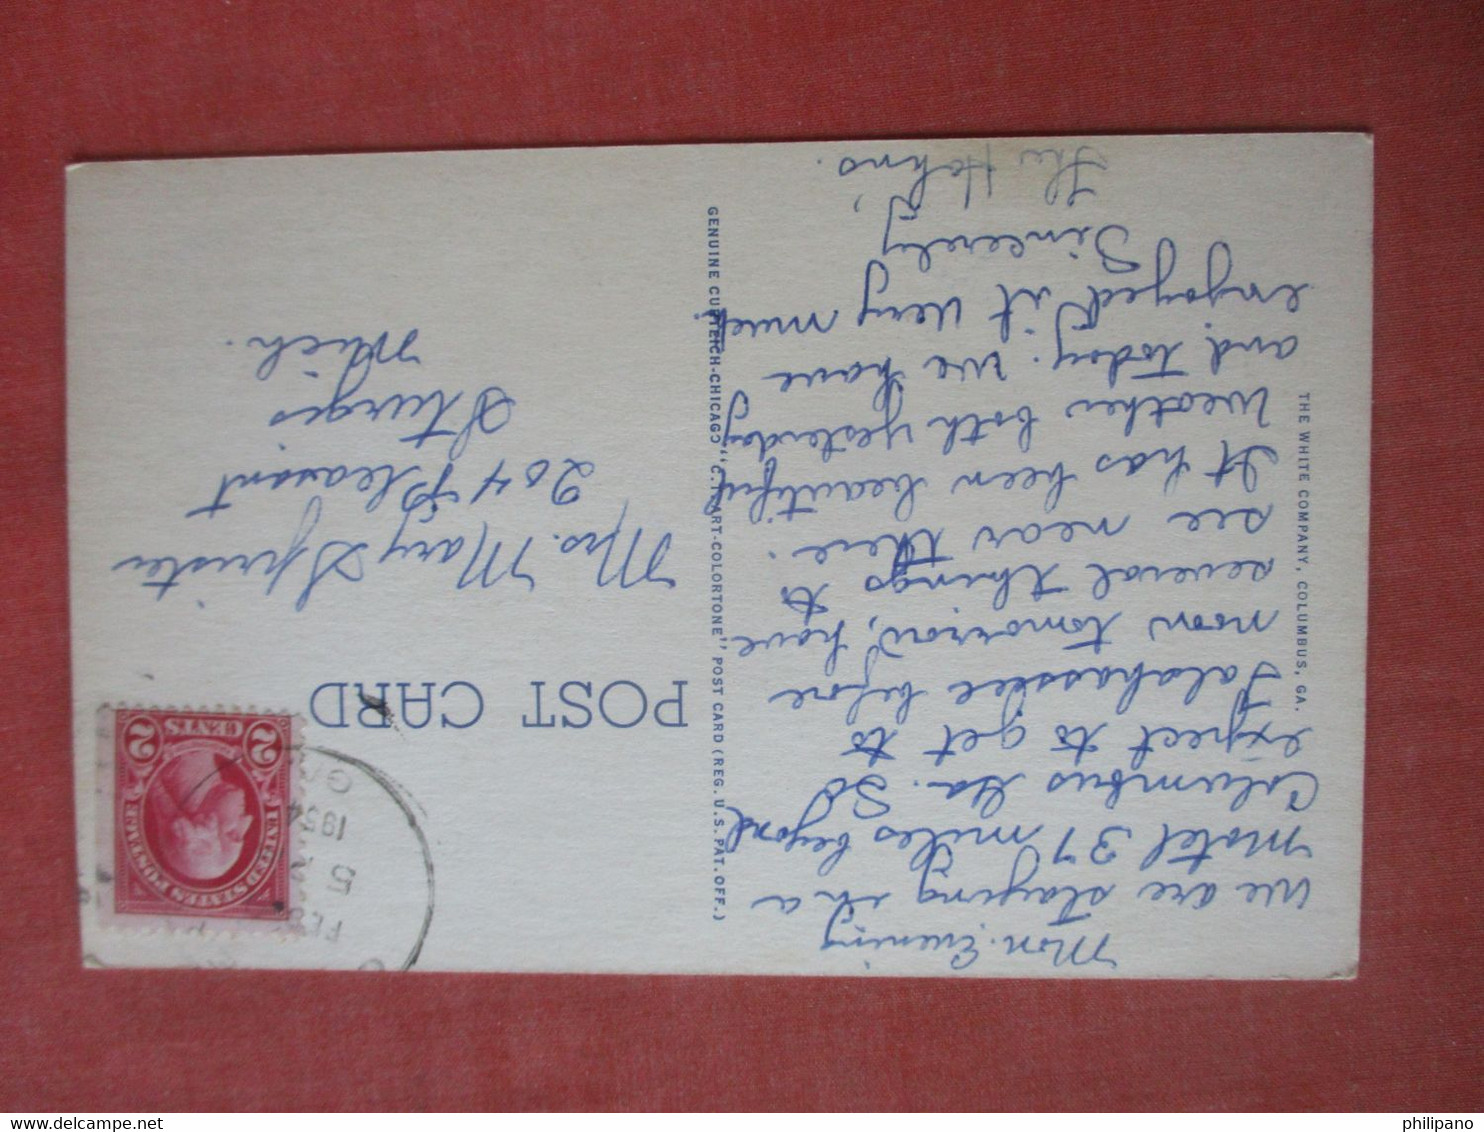 Mon. Evening
We are staying in a
Motel 37 miles beyond
Columbus Ga. So
expect to get to
Talahassee before
noon tomorrow, have
several things to
see near there.
It has been beautiful
weather both yesterday
and today. We have
enjoyed it very much
Sincerely,
The Hahns.
THE WHITE COMPANY, COLUMBUS, GA.
GENUINE CURTEICH-CHICAGO "C.T. ART-COLORTONE" POST CARD (REG. U. S. PAT. OFF.)
POST CARD
FEB
5
1954
GA
UNITED STATES POSTAGE
2 CENTS 2
Mrs. Mary
204 Pleasant
Sturgis
Mich.
philipano